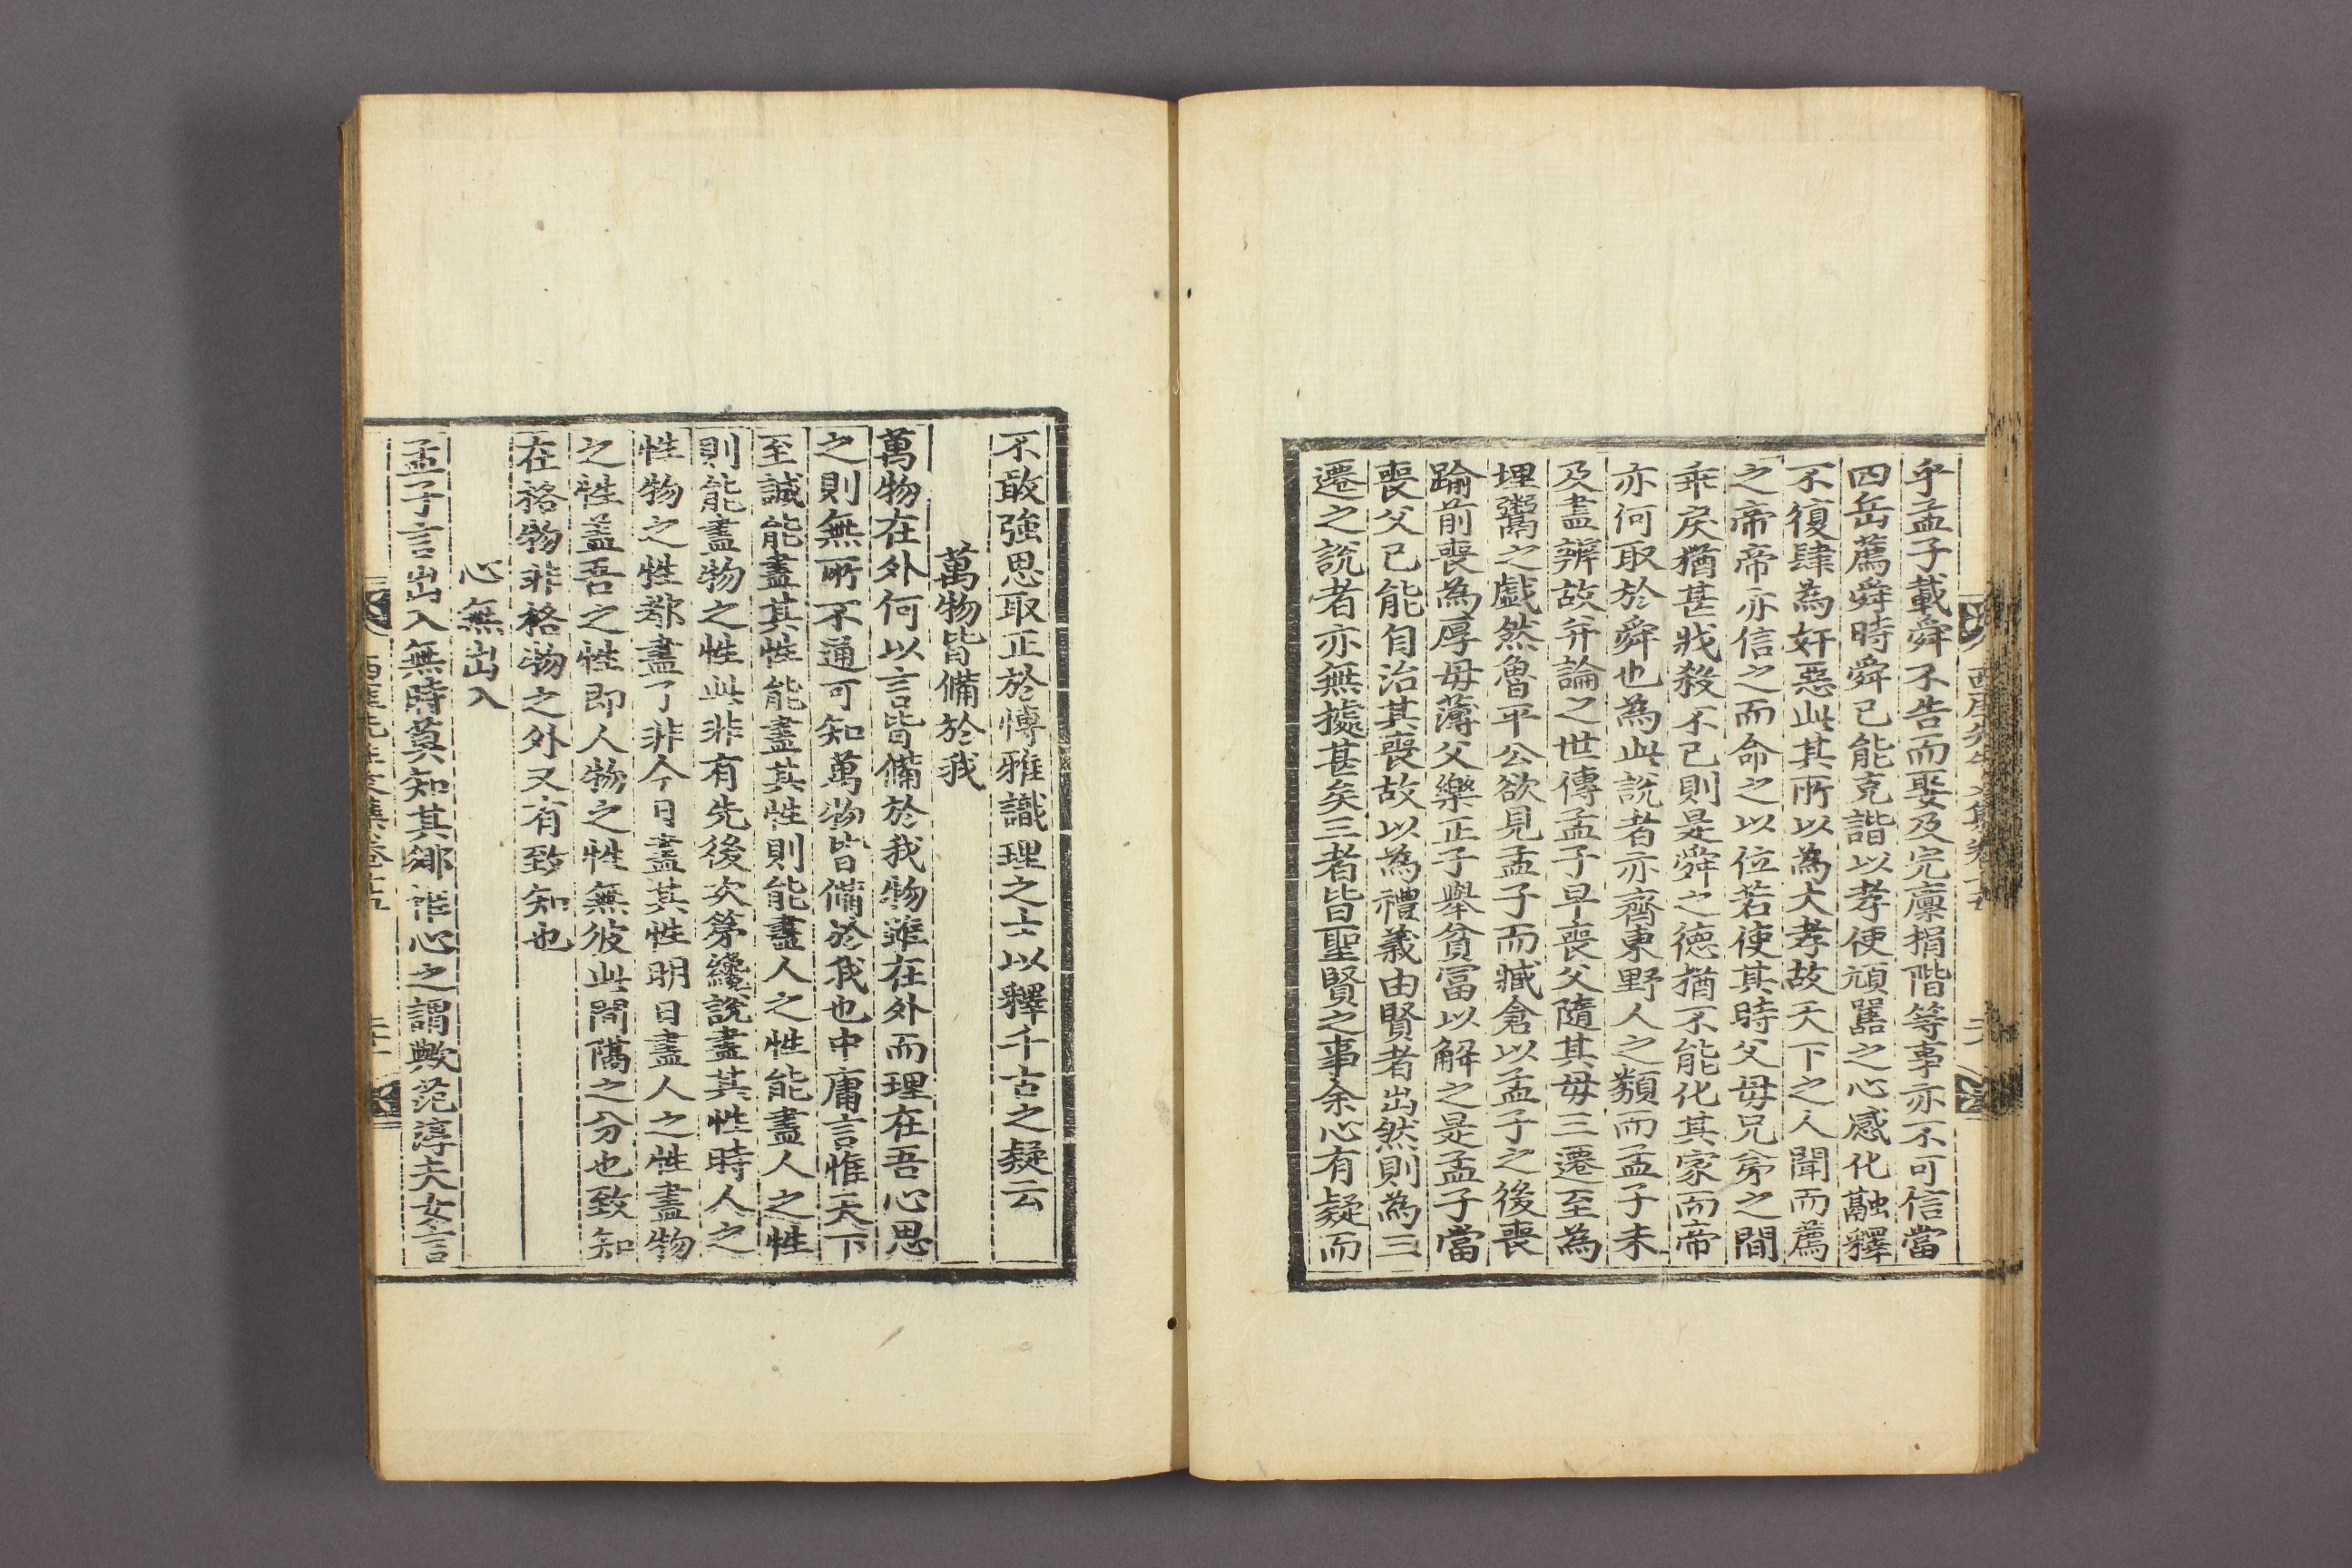 西厓先生文集卷十五
乎孟子載舜不告而娶及完廩捐階等事亦不可信當
四岳薦舜時舜已能克諧以孝使頑嚚之心感化融釋
不復肆為奸惡此其所以為大孝故天下之人聞而薦
之帝帝亦信之而命之以位若使其時父母兄弟之間
乖戾猶甚戕殺不已則是舜之德猶不能化其家而帝
亦何取於舜也為此說者亦齊東野人之類而孟子未
及盡辨故并論之世傳孟子早喪父隨其母三遷至為
埋鬻之戱然魯平公欲見孟子而臧倉以孟子之後喪
踰前喪為厚母薄父樂正子舉貧冨以解之是孟子當
喪父已能自治其喪故以為禮義由賢者出然則為三
遷之說者亦無據甚矣三者皆聖賢之事余心有疑而
不敢強思取正於愽雅識理之士以釋千古之疑云
萬物皆備於我
萬物在外何以言皆備於我物雖在外而理在吾心思
之則無所不通可知萬物皆備於我也中庸言惟天下
至誠能盡其性能盡其性則能盡人之性能盡人之性
則能盡物之性此非有先後次第纔說盡其性時人之
性物之性都盡了非今日盡其性明日盡人之性盡物
之性盖吾之性即人物之性無彼此間隔之分也致知
在格物非格物之外又有致知也
心無出入
孟子言出入無時莫知其鄉惟心之謂歟范淳夫女言
西厓先生文集卷十五